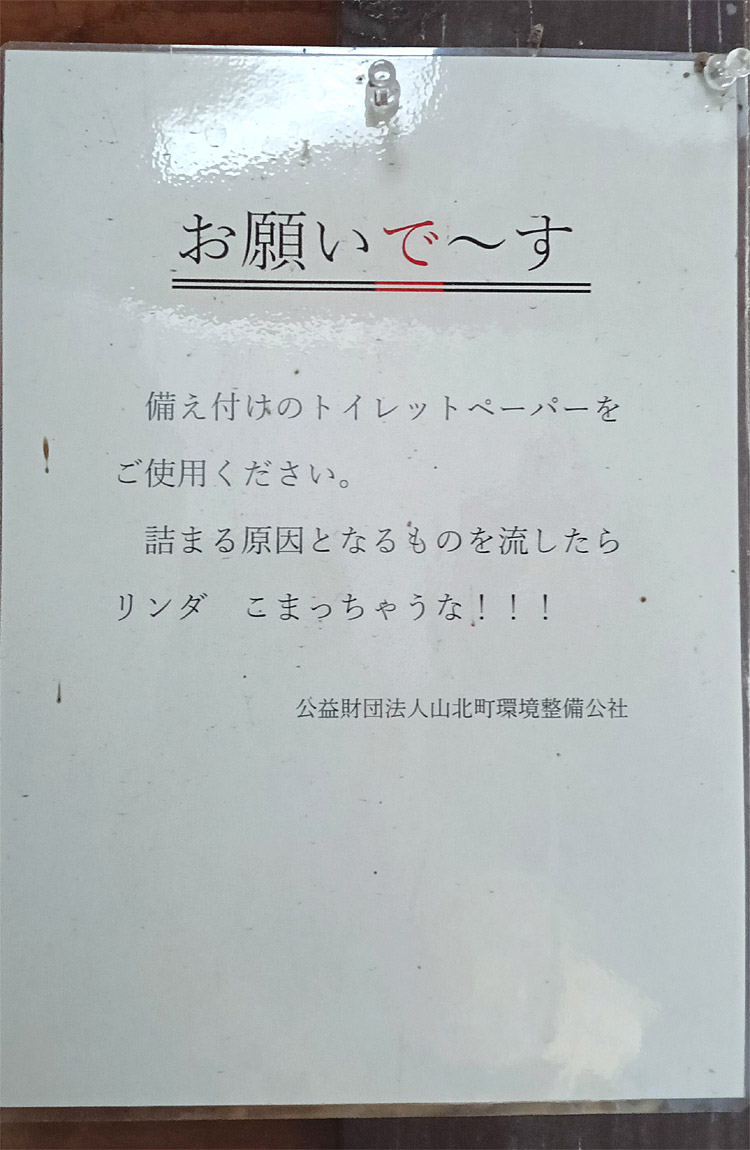 お願いで～す
備え付けのトイレットペーパーを
ご使用ください。
詰まる原因となるものを流したら
リンダ　こまっちゃうな！！！
公益財団法人山北町環境整備公社